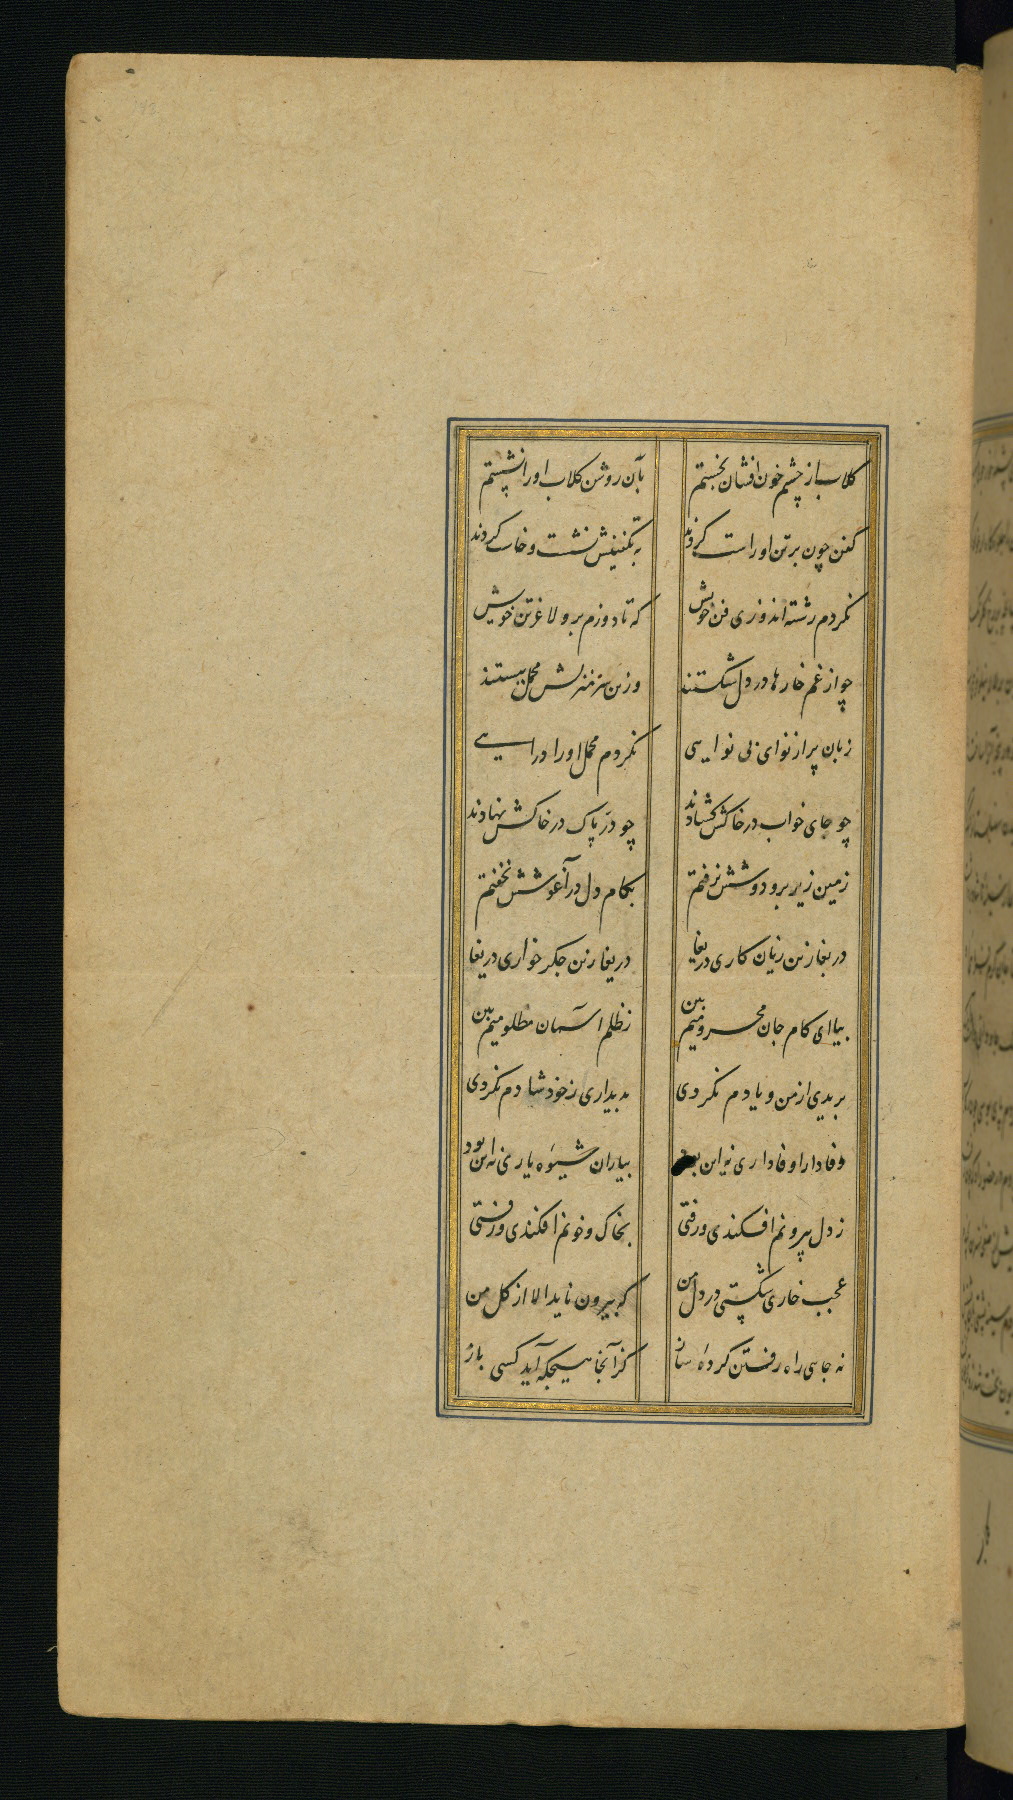 کلاب از چشم خون افشان نجستم بآن روشن کلاب او را نشستم
کفن چون بر تن او راست کردند به تکفینش نشست و خاست کردند
نکردم رشته اندوزی فن خویش که تا دوزم برو لاغر تن خویش
چو از غم خارها در دل شکستند وزین سر منزلش محمل ببستند
زبان پر از نوای بی نوایی نکردم محمل او را درایی
چو جای خواب در خاکش کشادند چو در پاک در خاکش نهادند
زمین زیر برو دوشش نرفتم بکام دل در آغوشش نخفتم
دریغا زین زیان کاری دریغا دریغا زین جکر خواری دریغا
بیا ای کام جان محرومیم بین زظلم آسمان مظلومیم بین
بریدی از من و یادم نکردی بدیداری زخود شادم نکردی
وفادارا وفاداری نه این بود بیاران شیوه یاری نه این بود
ز دل بیرونم افکندی و رفتی بخاک و خونم افکندی و رفتی
عجب خاری شکستی در دل من که بیرون ناید الا از کل من
نه جای راه رفتن کرده ساز کز آنجا هیچکه آید کسی باز